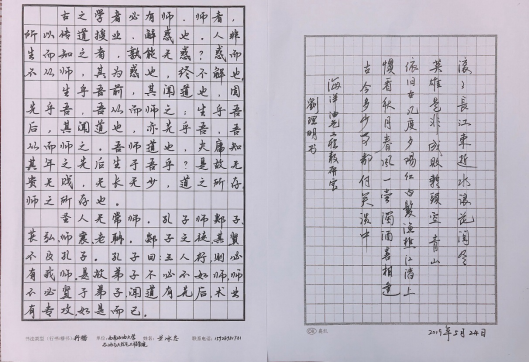 古之学者必有师。师者，
所以传道授业，解惑也。人非
生而知之者，孰能无惑？惑而
不从师，其为惑也，终不解也。
生乎吾前，其闻道也，固
先乎吾，吾从而师之；生乎吾
后，其闻道也，亦先乎吾，吾
从而师之。吾师道也，夫庸知
其年之先后生于吾乎？是故无
贵无贱，无长无少，道之所存
师之所存也。
圣人无常师。孔子师郯子、
苌弘、师襄、老聃。郯子之徒，其贤
不及孔子。孔子曰：三人行，则必
有我师。是故弟子不必不如师，师
不必贤于弟子，闻道有先后，术业
有专攻，如是而已。
行楷 单位： 姓名： 联系电话：
滚々長江東逝水浪花淘尽
英雄是非成败轉頭空青山
依旧在几度夕陽红白髮漁樵江渚上
慣看秋月春風一壶濁酒喜相逢
古今多少事都付笑談中
海洋油气工程教研室
劉理明书
2019年5月24日